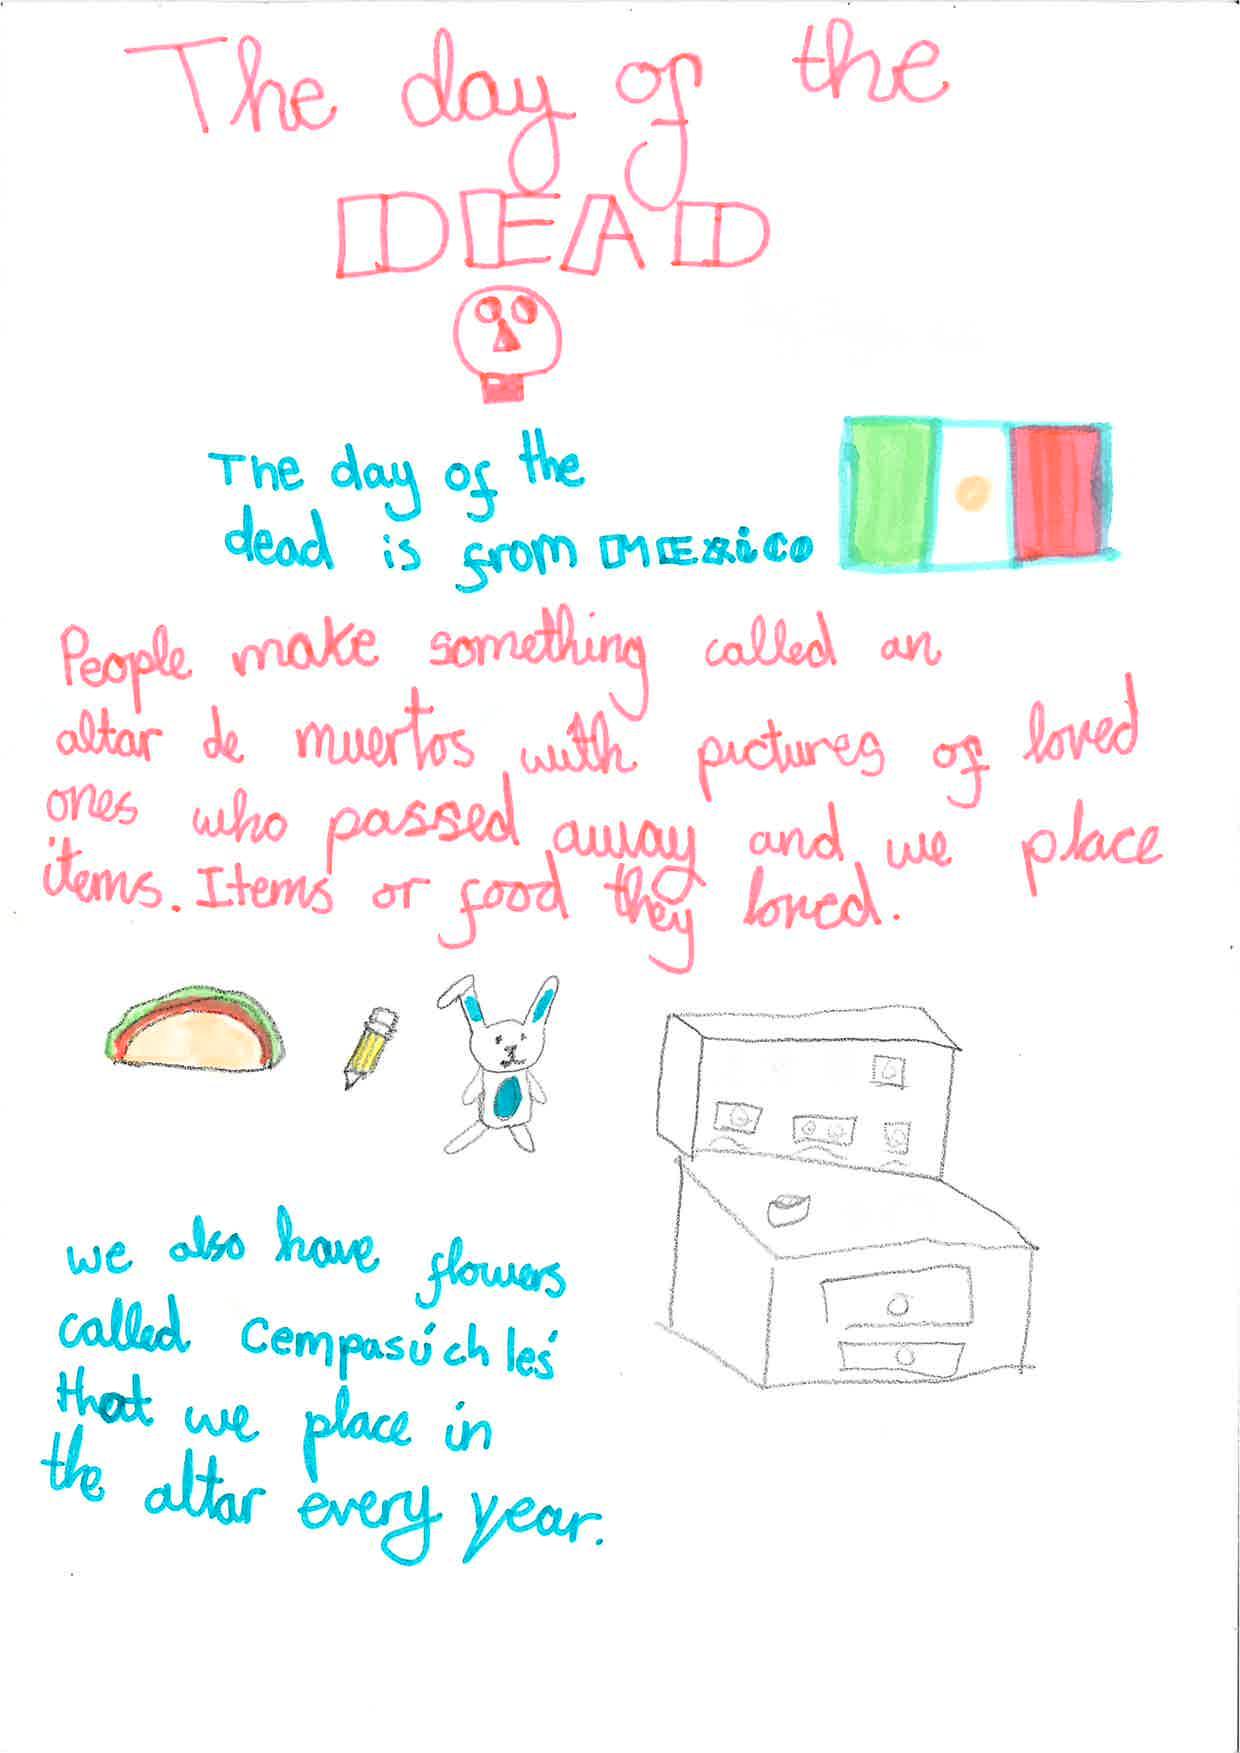 The day of the
DEAD
The day of the
dead is from MExico
People make something called an
altar de muertos with pictures of loved
ones who passed away and we place
items. Items or food they loved.
we also have flowers
called Cempasúchlés
that we place in
the altar every year.